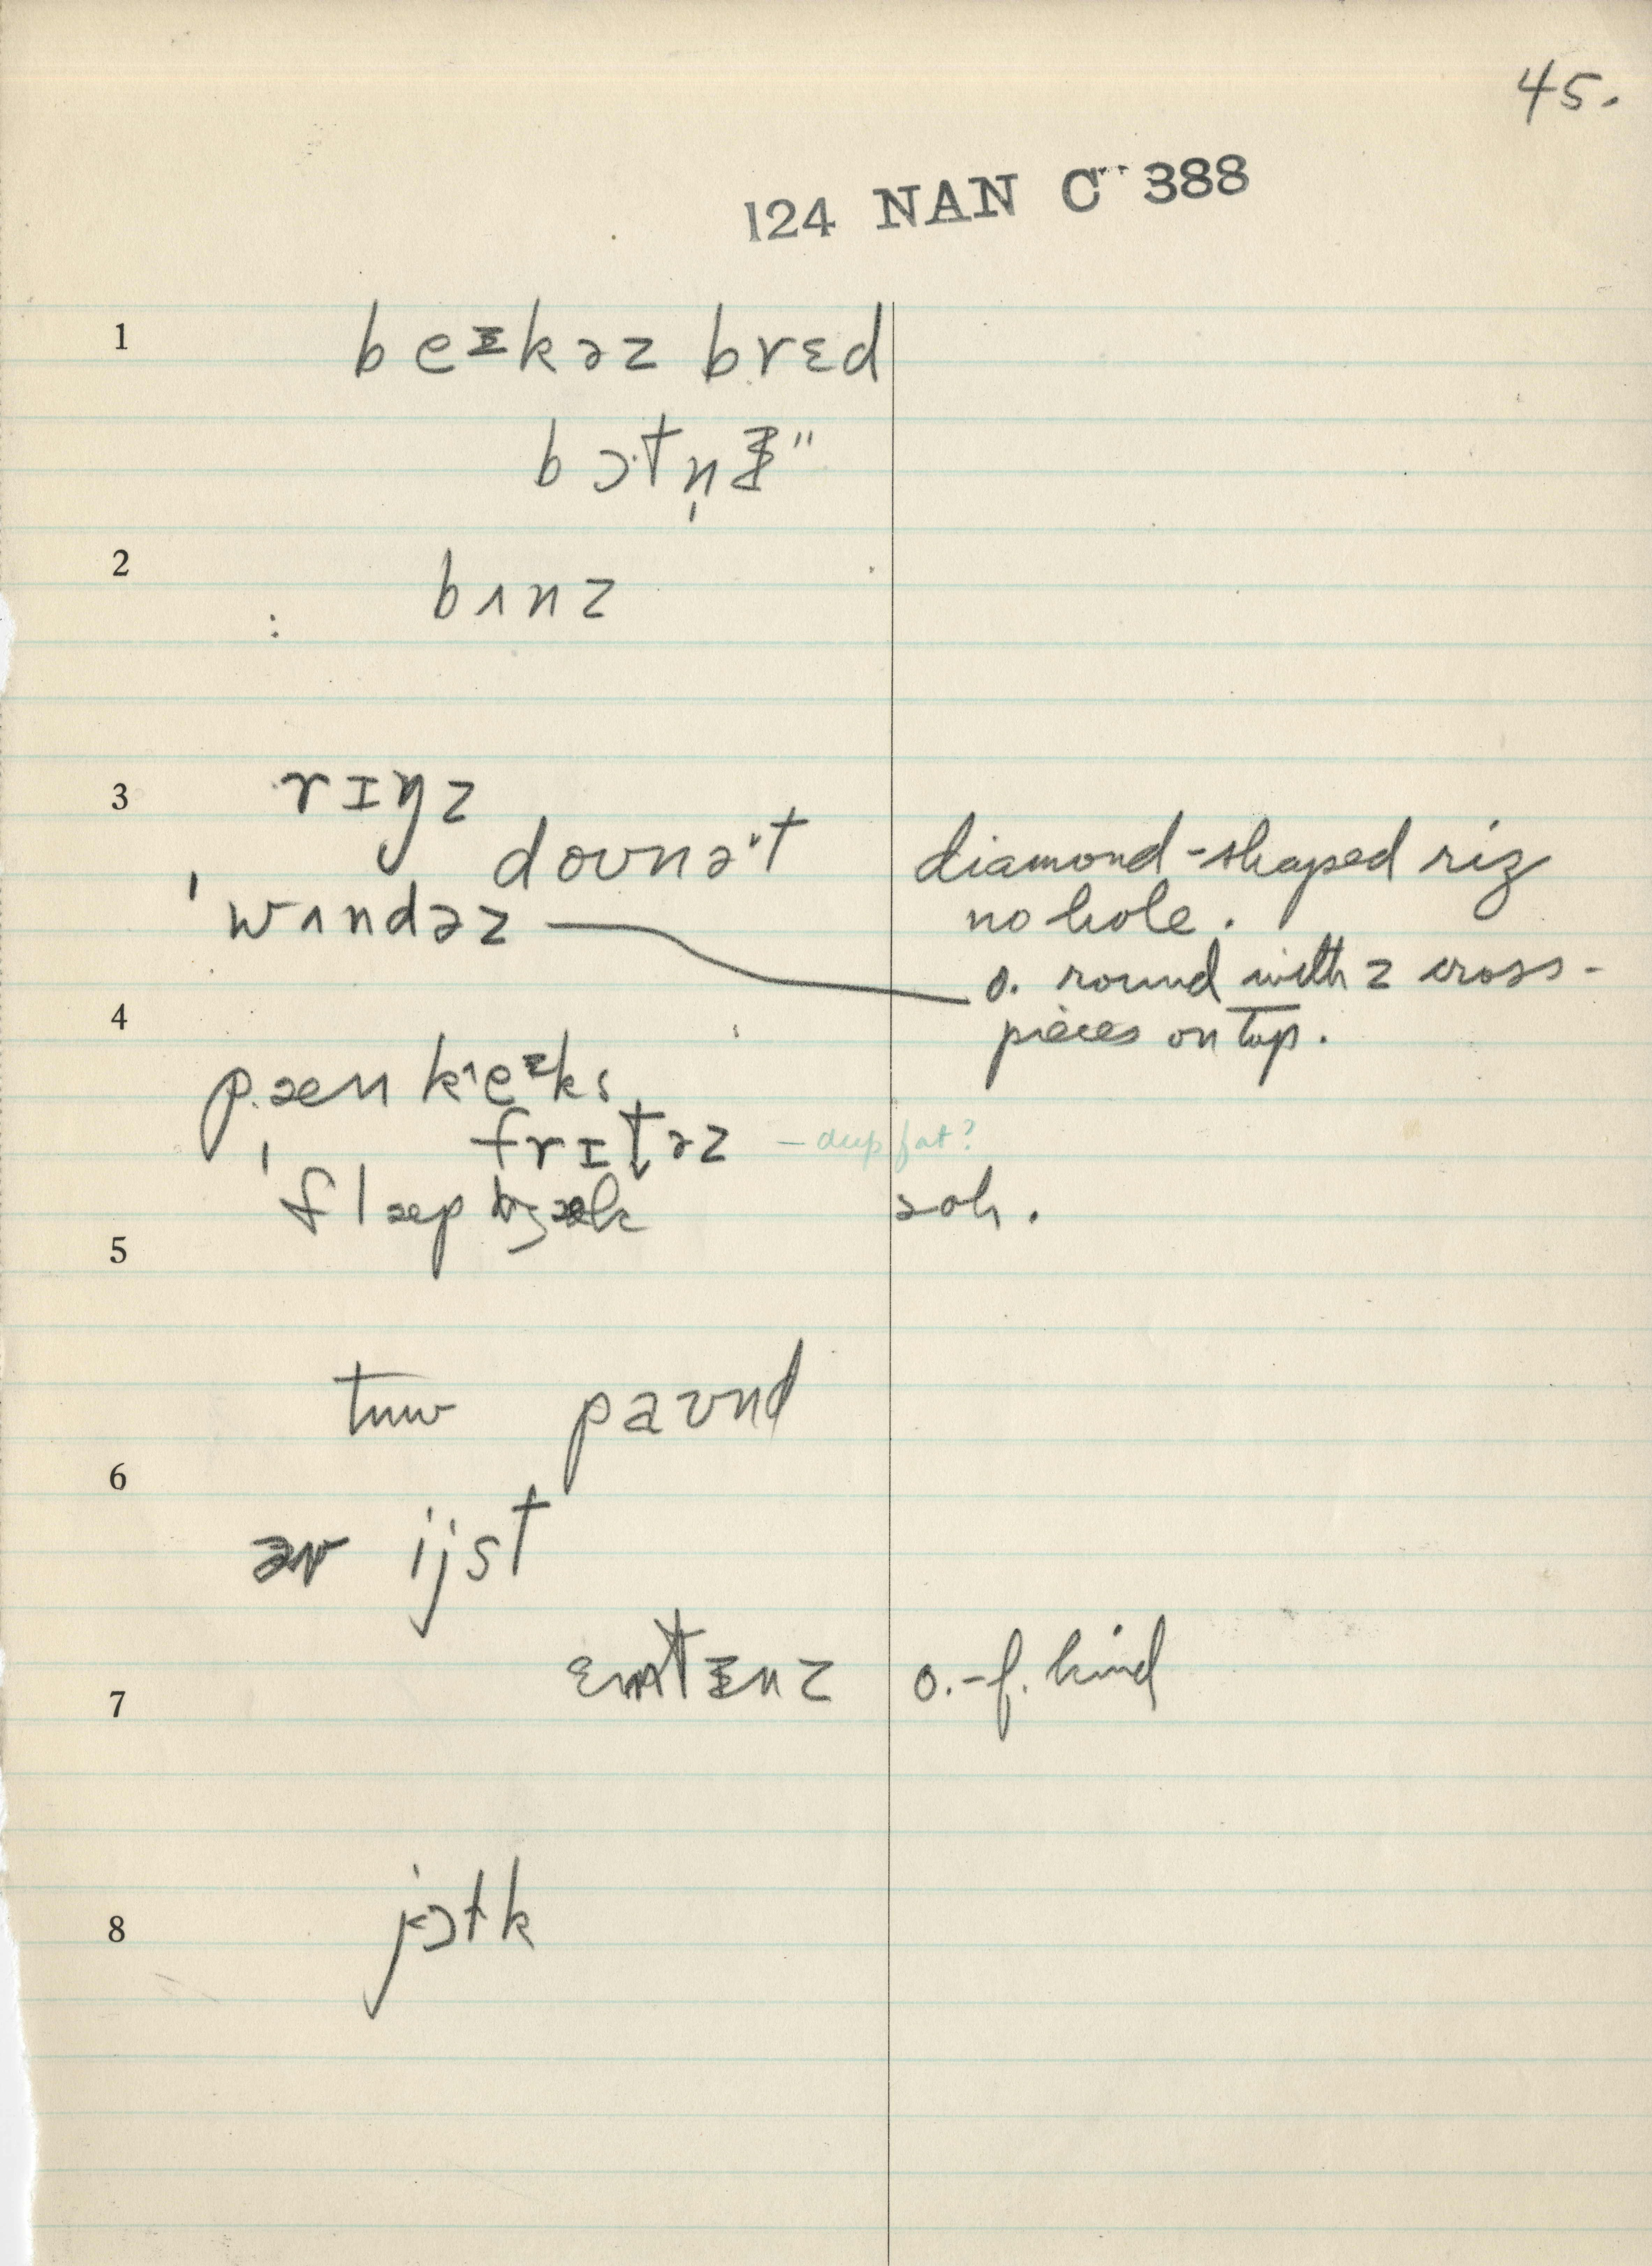 45.
124 NAN C 388
1 beɪkəz brɛd
bɔtn̩ "
2 bʌnz
3 rɪŋz
doʊnət diamond-shaped riz
no hole.
ˈwʌndəz o. round with 2 cross-
pieces on top.
4
pænkeɪks
frɪtəz — deep fat?
ˈflæpʤæk soh.
5
tuw paʊnd
6
əv ijst
ɛmtɪnz o.-f. kind
7
8 jɔtk